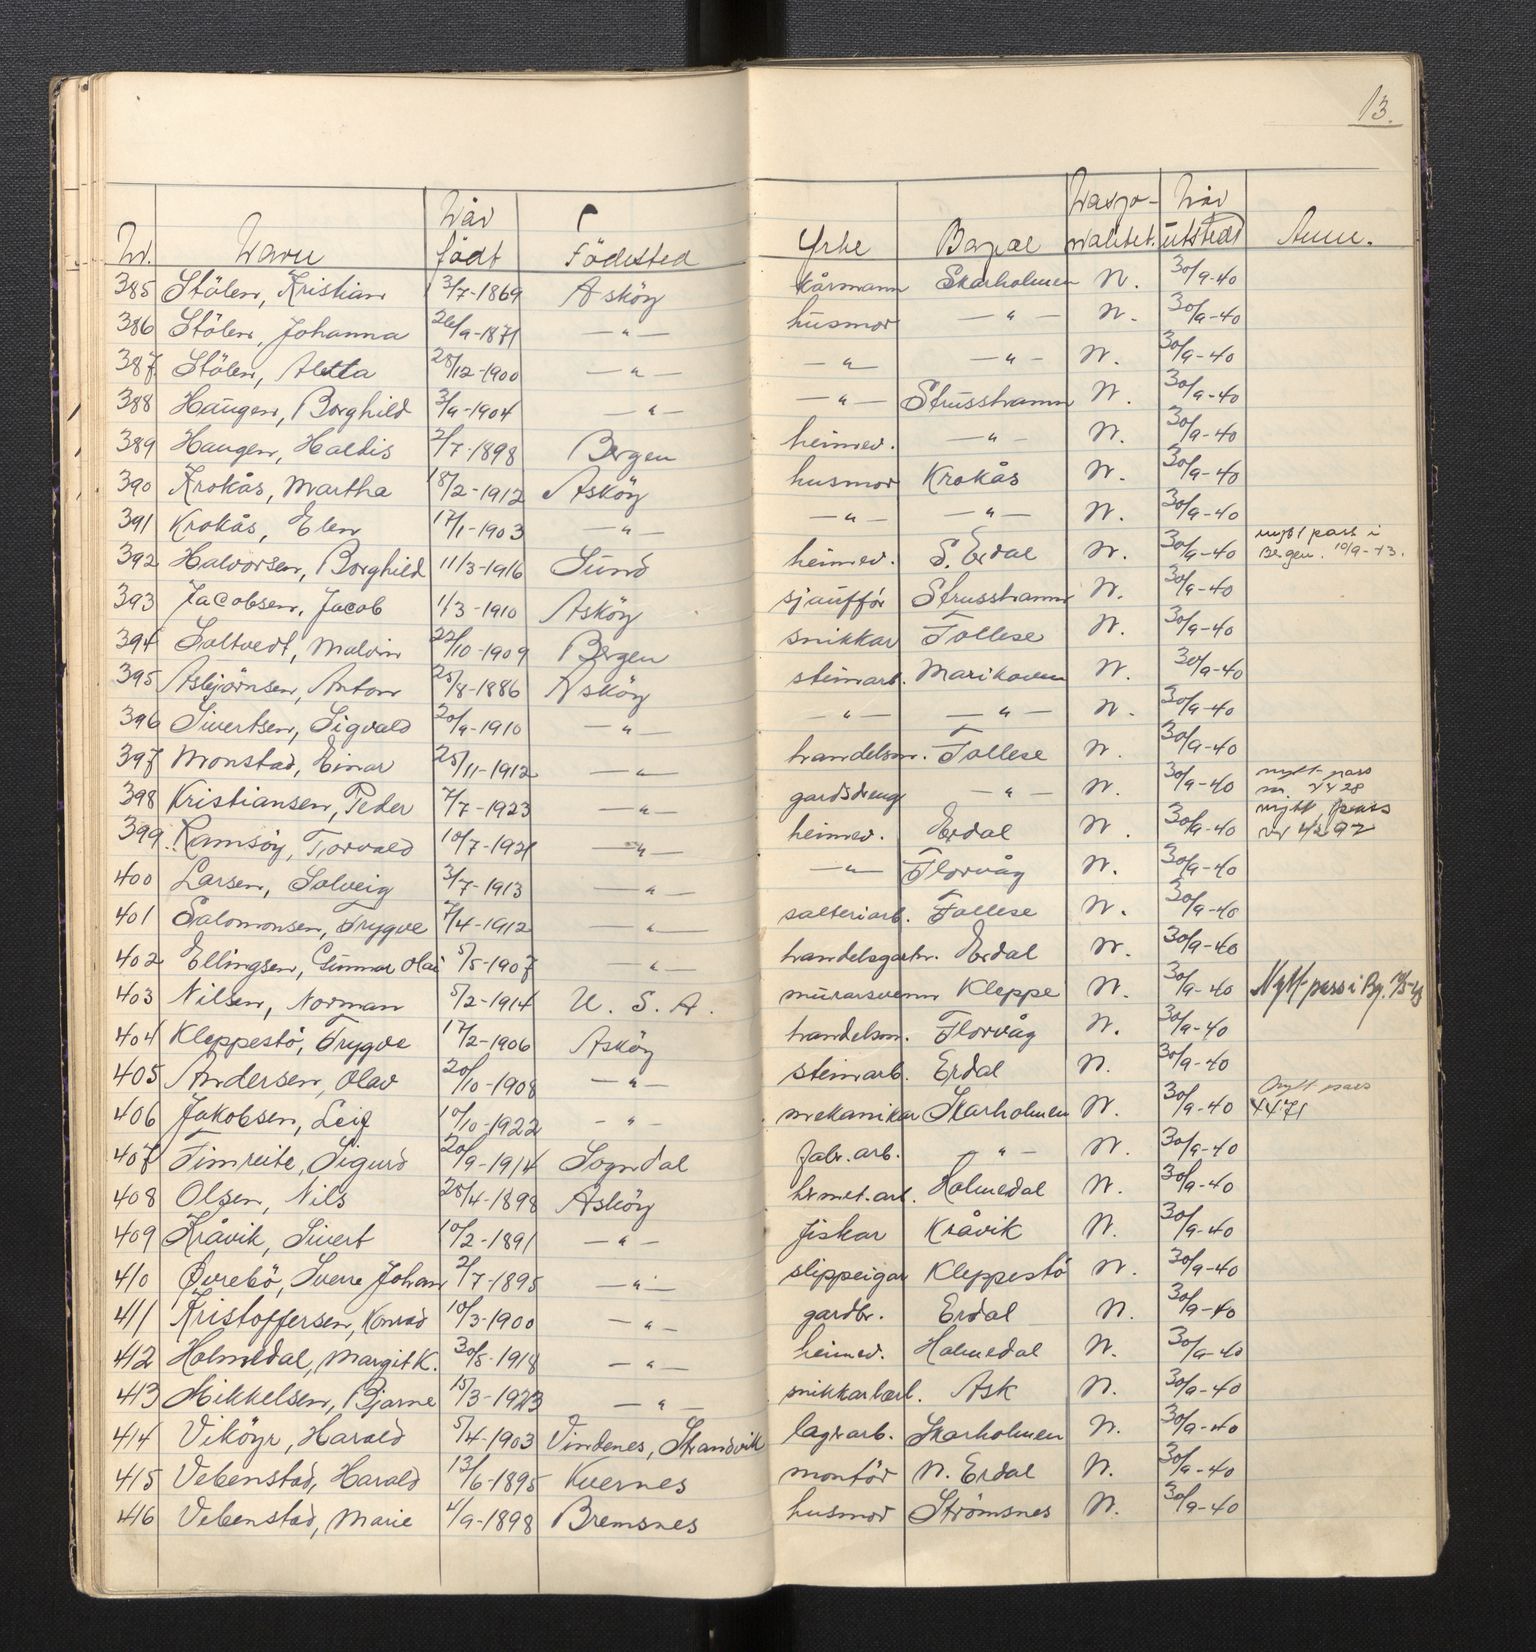 13.
Nr. Navn Når födt Födested Yrke Bopæl Nasjonalitet. Når utstedt Anm.
385 Stölen, Kristian 3/7-1869 Asköy kårmann Skarholmen N. 30/9-40
386 Stölen, Johanna 26/9-1871 —"— husmor —"— N. 30/9-40
387 Stölen, Aletta 28/12-1900 —"— —"— —"— N. 30/9-40
388 Haugen, Borghild 3/9-1904 —"— —"— Strusshamn N. 30/9-40
389 Haugen, Haldis 2/7-1898 Bergen heimev. —"— N. 30/9-40
390 Krokås, Martha 18/2-1912 Asköy husmor Krokås N. 30/9-40
391 Krokås, Elen 17/1-1903 —"— —"— —"— N. 30/9-40
392 Halvorsen, Borghild 11/3-1916 Sund heimev. S. Erdal N. 30/9-40 nytt pass i Bergen. 10/9-43.
393 Jacobsen, Jacob 1/3-1910 Asköy sjauffór Strusshamn N. 30/9-40
394 Saltvedt, Malvin 22/10-1909 Bergen snikkar Follese N. 30/9-40
395 Asbjörnsen, Anton 25/8-1886 Asköy steinarb. Marikoven N. 30/9-40
396 Sivertsen, Sigvald 20/9-1910 —"— —"— —"— N. 30/9-40
397 Monstad, Einar 25/11-1912 —"— handelsm. Follese N. 30/9-40
398 Kristiansen, Peder 7/7-1923 —"— gardsdreng —"— N. 30/9-40 nytt pass nr. 4428
399 Ramsöy, Torvald 10/7-1921 —"— heimev. Erdal N. 30/9-40 nytt pass nr 4297
400 Larsen, Solveig 3/7-1913 —"— —"— Florvåg N. 30/9-40
401 Salomonsen, Trygve 7/4-1912 —"— salteriarb. Follese N. 30/9-40
402 Ellingsen, Gunnar Olai 5/5-1907 —"— handelsgartn. Erdal N. 30/9-40
403 Nilsen, Norman 5/2-1914 U. S. A. murarsvenn Kleppe N. 30/9-40 Nytt pass i Bg.
404 Kleppestö, Trygve 17/2-1906 Asköy handelsm. Florvåg N. 30/9-40
405 Andersen, Olav 20/10-1908 —"— steinarb. Erdal N. 30/9-40
406 Jakobsen, Leif 10/10-1922 -"- mekanikar Skarholmen N. 30/9-40 Nytt pass 4471
407 Timreite, Sigurd 20/9-1914 Sogndal fabr. arb. —"— N. 30/9-40
408 Olsen, Nils 28/4-1898 Asköy hermet. arb. Holmedal N. 30/9-40
409 Kråvik, Sivert 10/2-1891 —"— fiskar Kråvik N. 30/9-40
410 Øvrebö, Sverre Johan 2/7-1895 —"— slippeigar Kleppestö N. 30/9-40
411 Kristoffersen, Konrad 10/3-1900 —"— gardbr. Erdal N. 30/9-40
412 Holmedal, Margit K. 30/5-1918 —"— heimev. Holmedal N. 30/9-40
413 Mikkelsen, Bjarne 15/3-1923 —"— snikkarlærl. Ask N. 30/9-40
414 Viköyr, Harald 5/4-1903 Vindenes, Strandvik lagerarb. Skarholmen N. 30/9-40
415 Vebenstad, Harald 13/6-1895 Kvernes montör N. Erdal N. 30/9-40
416 Vebenstad, Marie 4/9-1898 Bremsnes husmor Strömsnes N. 30/9-40